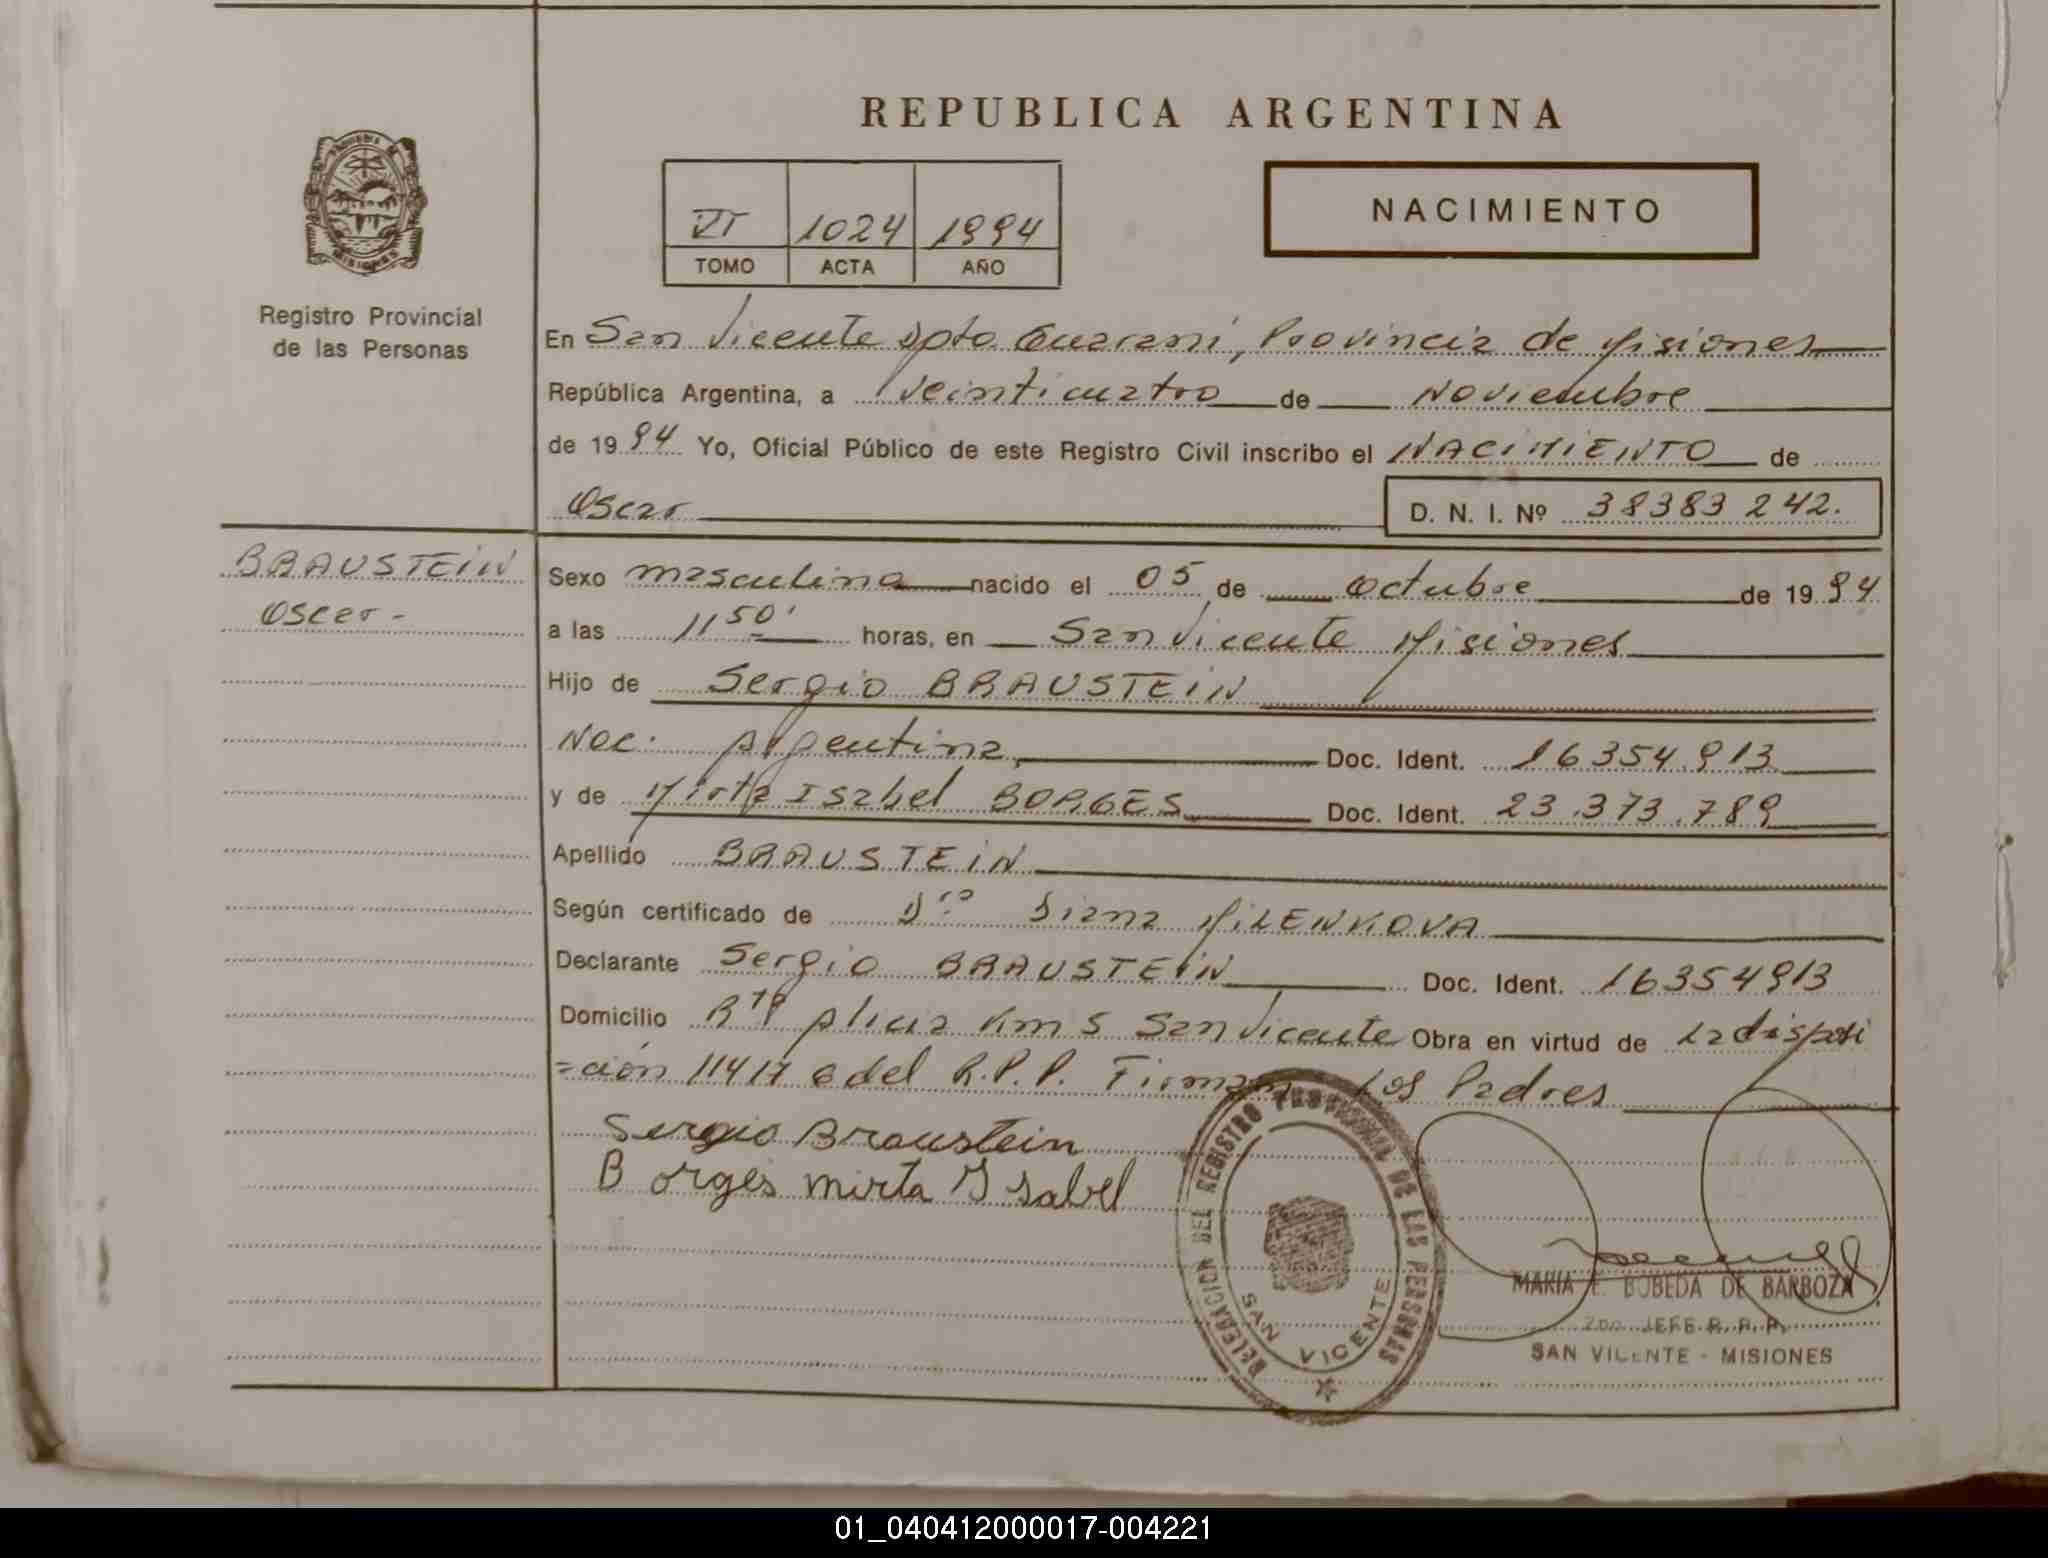 REPUBLICA ARGENTINA
VI 1024 1994
TOMO ACTA AÑO
NACIMIENTO
Registro Provincial
de las Personas
En San Vicente Dpto Guarani, Provincia de Misiones
República Argentina, a Veinticuatro de Noviembre
de 19 94 Yo, Oficial Público de este Registro Civil inscribo el NACIMIENTO de
Oscar D. N. I. Nº 38383 242.
BRAUSTEIN
Oscar -
Sexo masculino nacido el 05 de Octubre de 19 94
a las 11 50' horas, en San Vicente Misiones
Hijo de Sergio BRAUSTEIN
Nac. Argentina, Doc. Ident. 16354.913
y de Mirta Isabel BORGES Doc. Ident. 23.373.789
Apellido BRAUSTEIN
Según certificado de Dra Diana MILENKOVA
Declarante Sergio BRAUSTEIN Doc. Ident. 16354913
Domicilio Rta Alicia Km 5 San Vicente Obra en virtud de La disposi
=ción 114 del R.P.P. Firman Los Padres
Sergio Braustein
Borges mirta Ysabel
DELEGACION DEL REGISTRO PROVINCIAL DE LAS PERSONAS
SAN VICENTE
MARIA E. BOBEDA DE BARBOZA
2do. JEFE R. P. P.
SAN VICENTE - MISIONES
01_040412000017-004221